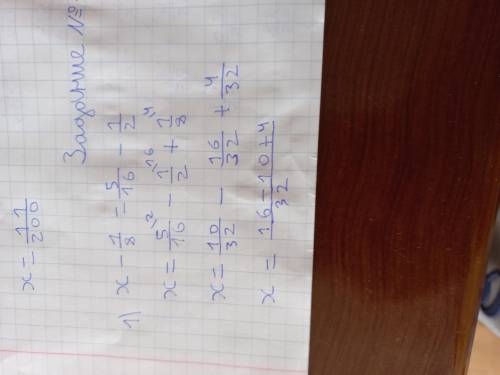 x = 11/200
Задание №
1) x - 1/8 = 5/16 - 1/2
x = 5/16 ^2 - 1/2 ^16 + 1/8 ^4
x = 10/32 - 16/32 + 4/32
x = 16-10+4/32